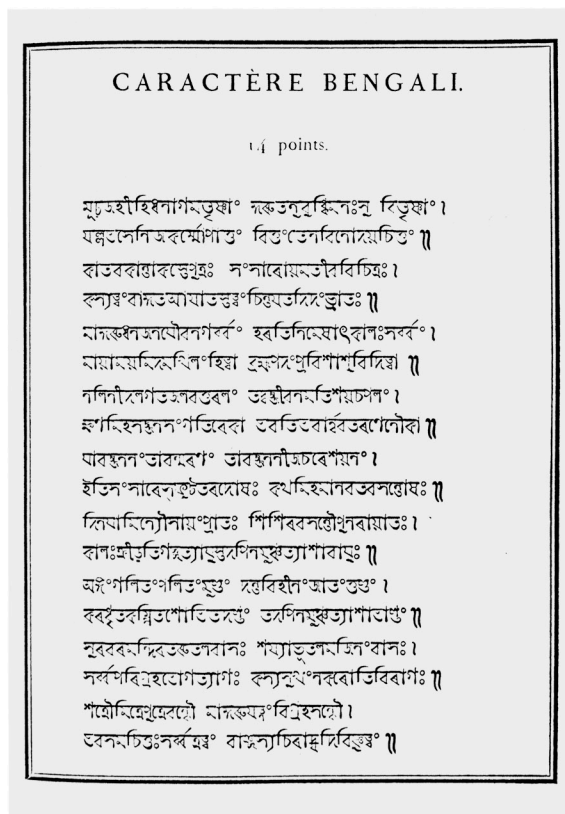 CARACTÈRE BENGALI.
14 points.
মূঢজহীহিধনাগমতৃষ্ণাং কুরুতনুবুদ্ধিমনঃসু বিতৃষ্ণাং।
যল্লভসেনিজকর্ম্মোপাত্তং বিত্তংতেনবিনোদয়চিত্তং॥
কাতবকান্তাকস্তেপুত্রঃ সংসারোয়মতীববিচিত্রঃ।
কস্যত্বংবাকুতআয়াতস্তত্ত্বংচিন্তয়তদিদংভ্রাতঃ॥
মাকুরুধনজনযৌবনগর্ব্বং হরতিনিমেষাৎকালঃসর্ব্বং।
মায়াময়মিদমখিলংহিত্বা ব্রহ্মপদংপ্রবিশাশুবিদিত্বা॥
নলিনীদলগতজলবত্তরলং তদ্বজ্জীবনমতিশয়চপলং।
ক্ষণমিহসজ্জনসংগতিরেকা ভবতিভবার্ণবতরণেনৌকা॥
যাবজ্জননংতাবন্মরণং তাবজ্জননীজঠরেশয়নং।
ইতিসংসারেস্ফুটতরদোষঃ কথমিহমানবতবসন্তোষঃ॥
দিনযামিন্যৌসায়ংপ্রাতঃ শিশিরবসন্তৌপুনরায়াতঃ।
কালঃক্রীড়তিগচ্ছত্যায়ুস্তদপিনমুঞ্চত্যাশাবায়ুঃ॥
অঙ্গংগলিতংপলিতংমুণ্ডং দন্তবিহীনংজাতংতুণ্ডং।
করধৃতকম্পিতশোভিতদণ্ডং তদপিনমুঞ্চত্যাশাভাণ্ডং॥
সুরবরমন্দিরতরুতলবাসঃ শয্যাভূতলমজিনংবাসঃ।
সর্ব্বপরিগ্রহভোগত্যাগঃ কস্যসুখংনকরোতিবিরাগঃ॥
শত্রৌমিত্রেপুত্রেবন্ধৌ মাকুরুযত্নংবিগ্রহসন্ধৌ।
ভবসমচিত্তঃসর্ব্বত্রত্বং বাঞ্ছস্যচিরাদ্যদিবিষ্ণুত্বং॥